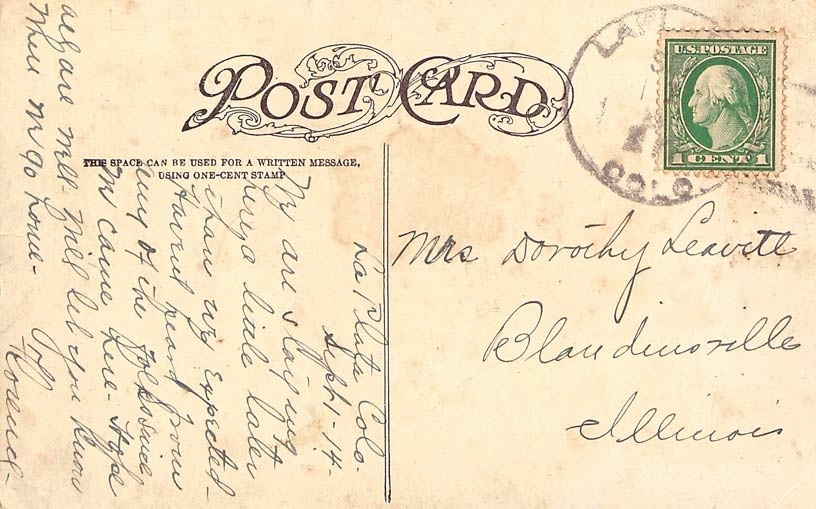 POST CARD
THIS SPACE CAN BE USED FOR A WRITTEN MESSAGE,
USING ONE-CENT STAMP
U.S. POSTAGE
1 CENT 1
COLO.
Mrs Dorothy Leavitt
Blandinsville
Illinois
La Plata Colo.
Sept-1-14-
We are staying
here a little later
than we expected-
Havent heard from
any of the folks since
we came here- Hope
all are well- Will let you know
when we go home-